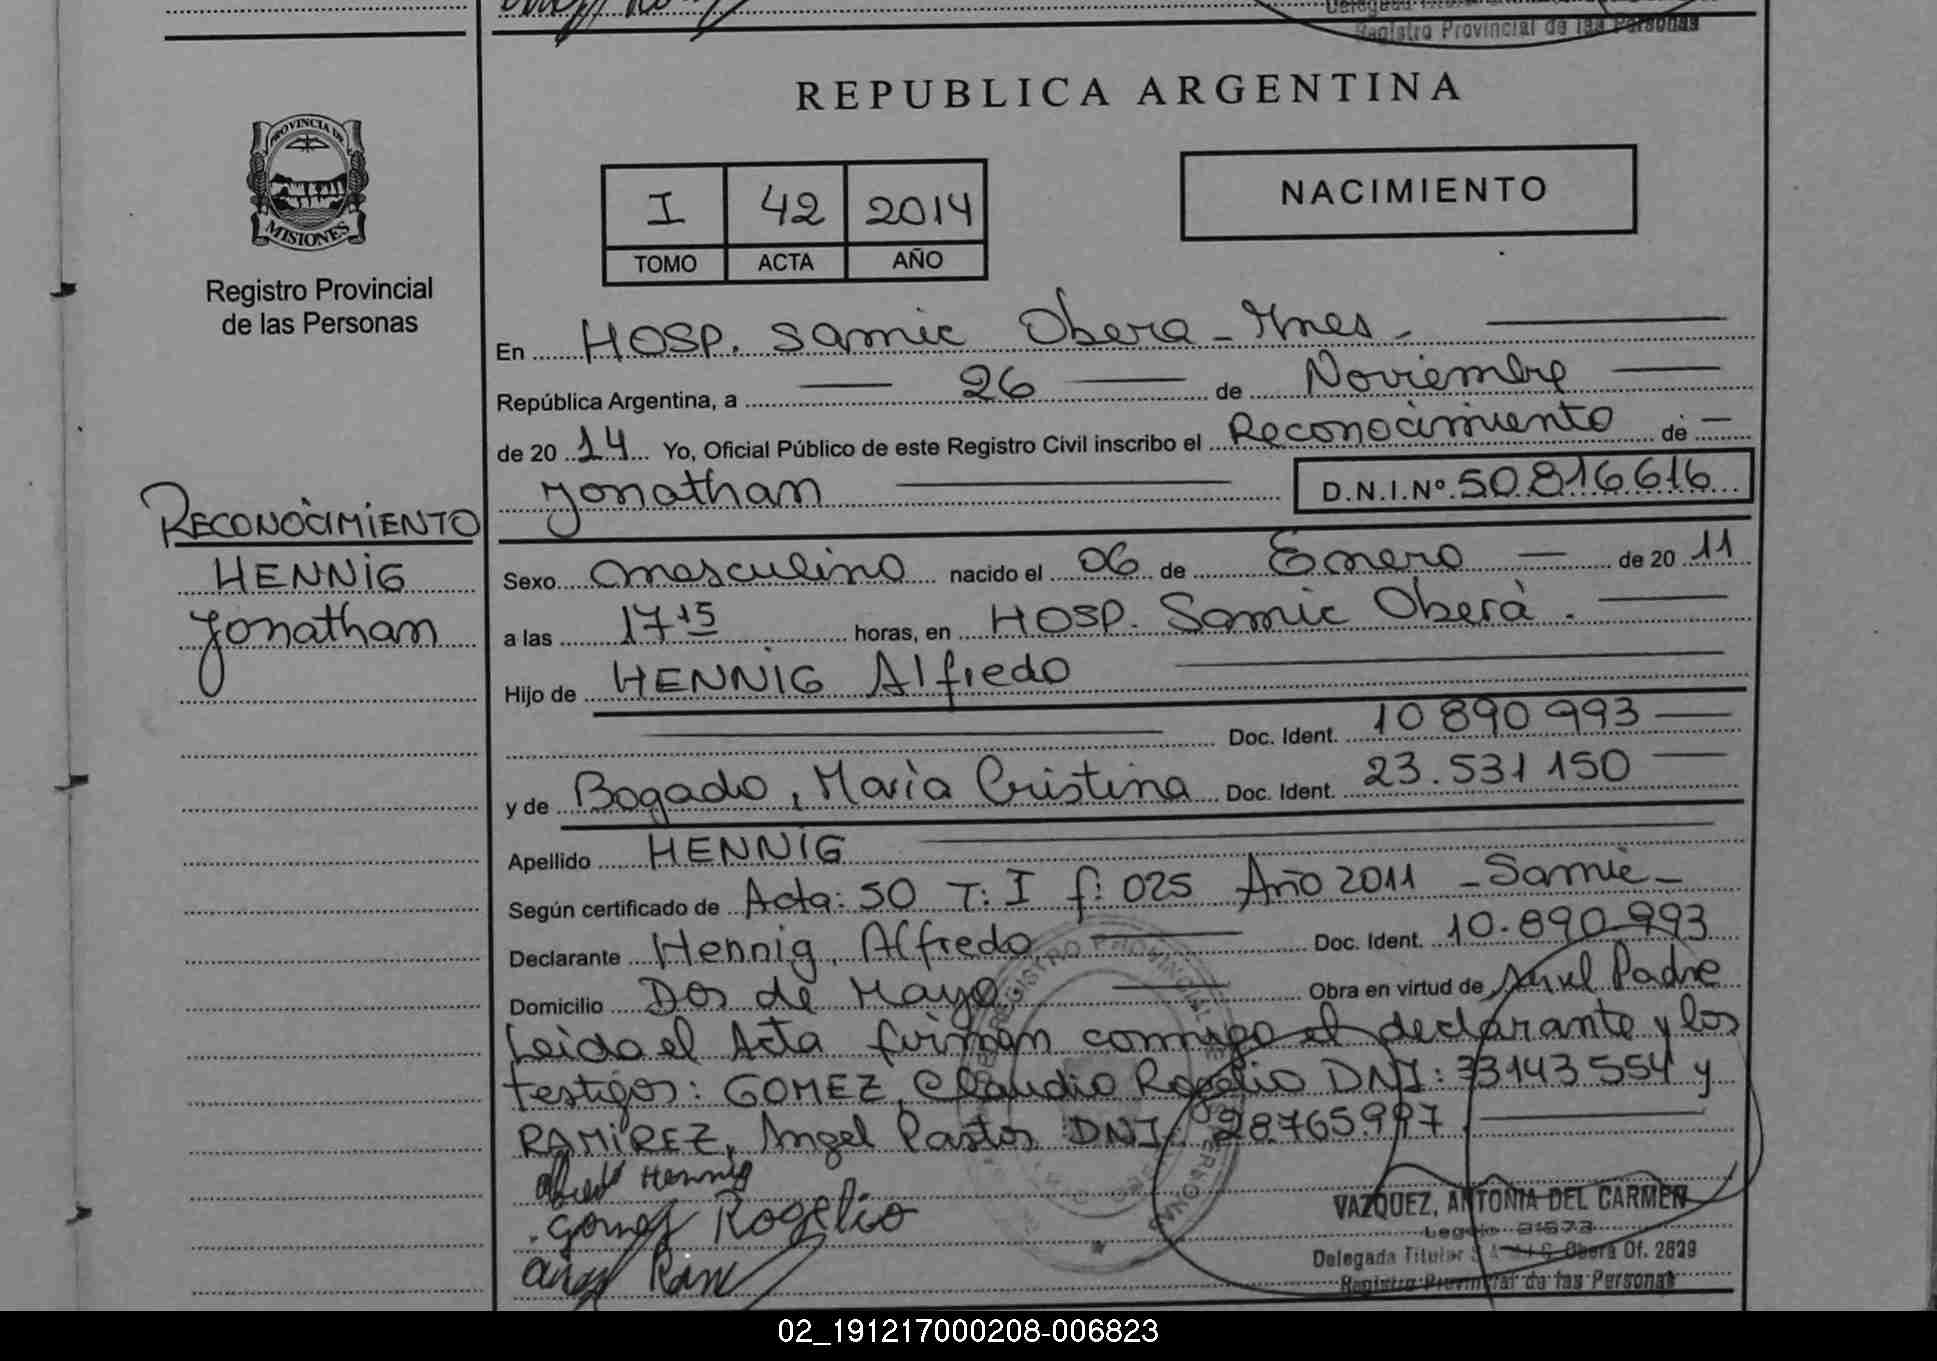 Registro Provincial de las Personas
REPUBLICA ARGENTINA
PROVINCIA DE
MISIONES
Registro Provincial
de las Personas
I 42 2014
TOMO ACTA AÑO
NACIMIENTO
En HOSP. Samic Obera - Mnes -
República Argentina, a 26 de Noviembre
de 20 14 Yo, Oficial Público de este Registro Civil inscribo el Reconocimiento de
Jonathan D.N.I.Nº 50.816.616
RECONOCIMIENTO
HENNIG
Jonathan
Sexo masculino nacido el 06 de Enero de 20 11
a las 17 15 horas, en HOSP. Samic Oberá.
Hijo de HENNIG Alfredo
Doc. Ident. 10 890 993
y de Bogado, María Cristina Doc. Ident. 23.531 150
Apellido HENNIG
Según certificado de Acta: 50 T: I f: 025 Año 2011 - Samic -
Declarante Hennig, Alfredo Doc. Ident. 10.890.993
Domicilio Dos de Mayo Obra en virtud de Padre
Leida el Acta firman conmigo el declarante y los
testigos: GOMEZ, Claudio Rogelio DNI: 33143554 y
RAMIREZ, Angel Pastor DNI: 28.765.997
Alfredo Hennig
Gomez Rogelio
VAZQUEZ, ANTONIA DEL CARMEN
Legajo 31573
Delegada Titular Oberá Of. 2829
Registro Provincial de las Personas
02_191217000208-006823